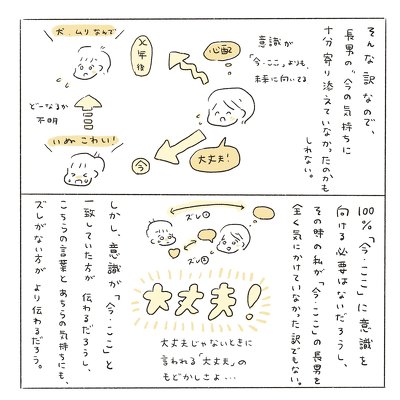 そんな訳なので、
長男の"今の気持ちに
十分寄り添えていなかったのかも
しれない。
意識が
「今・ここ」よりも
未来に向いてる
心配
大丈夫!
X年後
今
犬、ムリなんで
どーなるか
不明
いぬ こわい!
100%「今・ここ」に意識を
向ける必要はないだろうし、
その時の私が「今・ここ」の長男を
全く気にかけていなかった訳でもない。
ズレ①
ズレ②
大丈夫!
大丈夫じゃないときに
言われる「大丈夫」の
もどかしさよ…
しかし、意識が「今・ここ」と
一致していた方が 伝わるだろうし、
こちらの言葉とあちらの気持ちにも、
ズレがない方が より伝わるだろう。